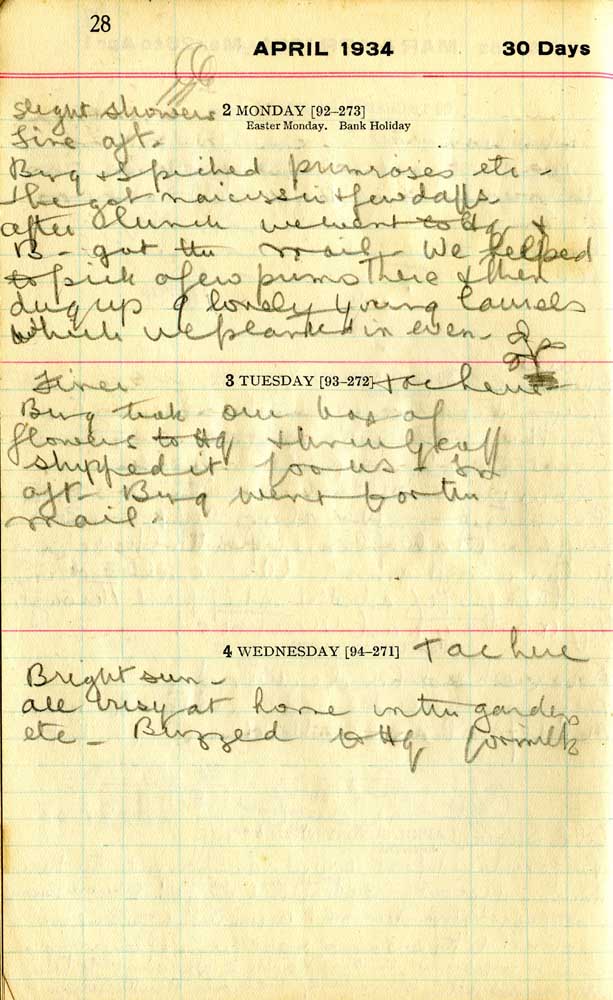 28
APRIL 1934 30 Days
slight showers 2 MONDAY [92–273]
Easter Monday. Bank Holiday
fine aft.
Berg + I picked primroses etc -
she got narcissi + few daffs
after lunch we went to Hq +
B - got the mail - We helped
to pick a few prims there + then
dug up 9 lovely young laurels
which we planted in even -
Fine 3 TUESDAY [93–272]
Berg took our box of
flowers to Hq +
shipped it for us - In
aft - Berg went for the
mail.
4 WEDNESDAY [94–271] + ache
Bright sun -
all busy at home in the garden
etc - Buzzed to Hq for milk